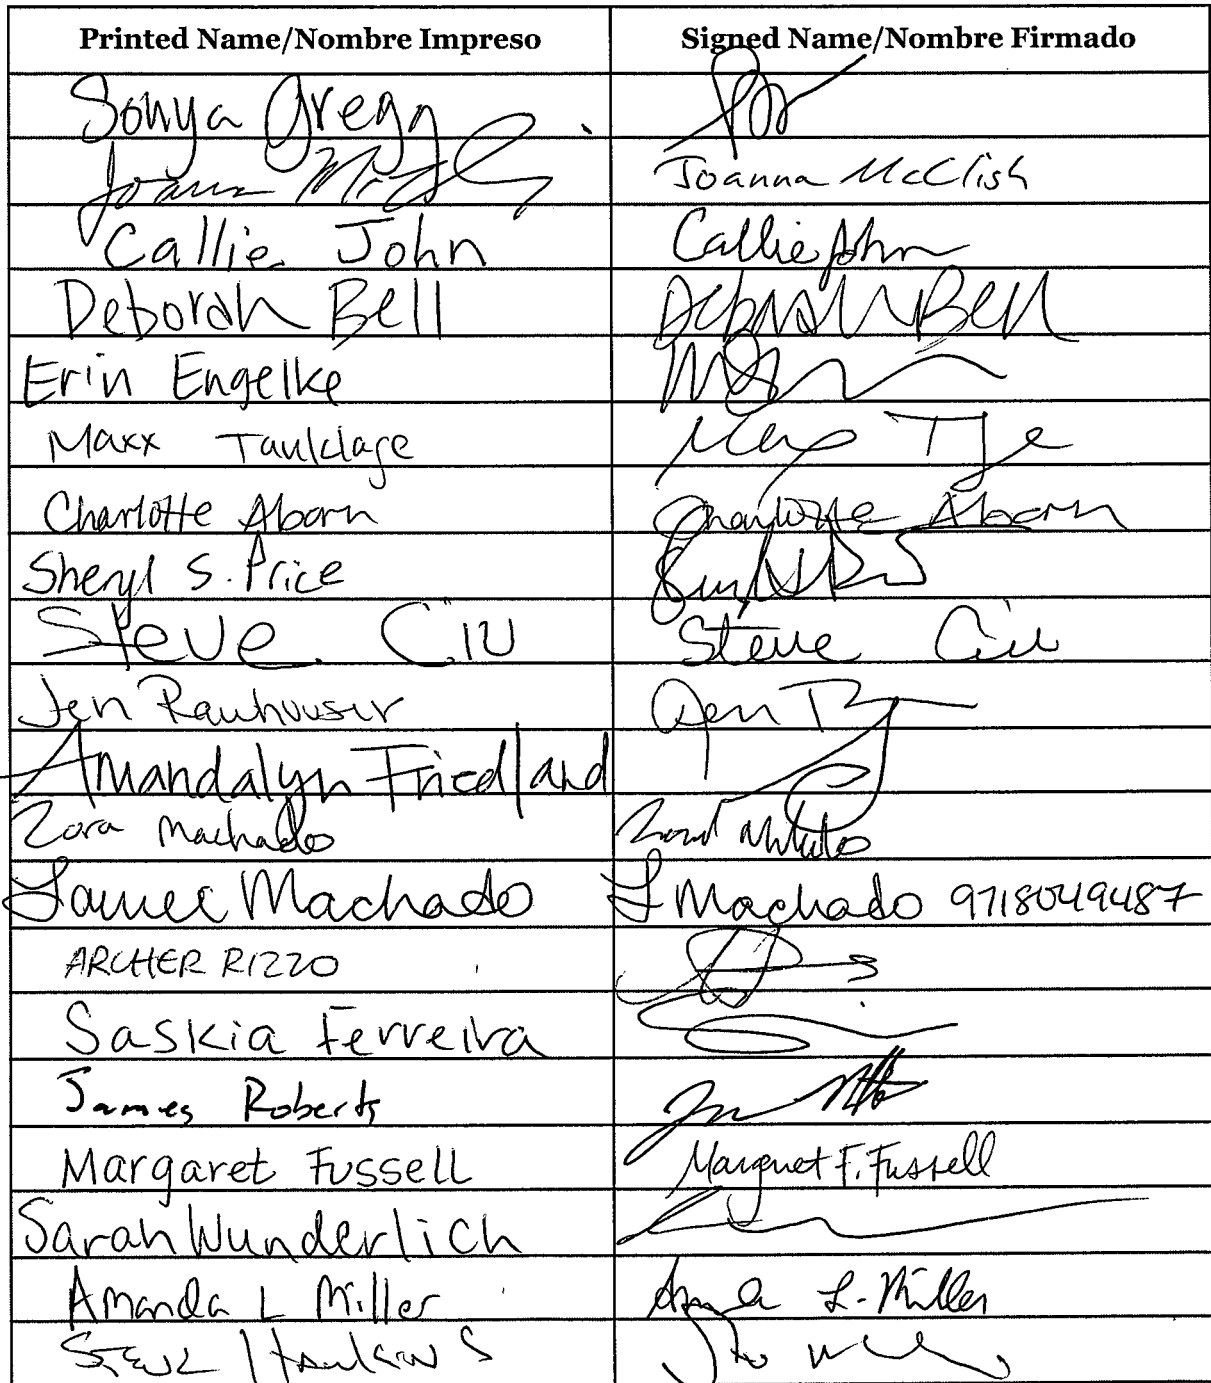 Printed Name/Nombre Impreso Signed Name/Nombre Firmado
Sonya Gregg
Joanna McClish
Callie John Callie John
Deborah Bell Deborah Bell
Erin Engelke
Maxx
Charlotte Aborn Charlotte Aborn
Sheryl S. Price
Steve Ciu Steve Ciu
Jen Rauhouser Jen
Amandalyn Friedland
Zora Machado
Machado L Machado 9718049487
ARCHER RIZZO
Saskia Ferreira
James Roberts
Margaret Fussell Margaret F. Fussell
Sarah Wunderlich
Amanda L Miller Amanda L. Miller
Steve